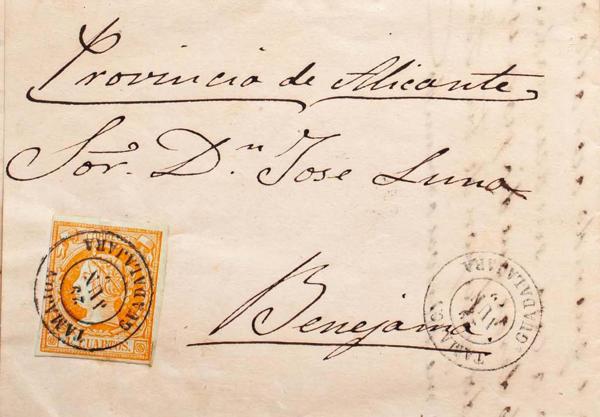 Provincia de Alicante
Sor. Dn Jose Luna
Benejama
TAMAJON
GUADALAJARA
CUARTOS.
GUADALAJARA